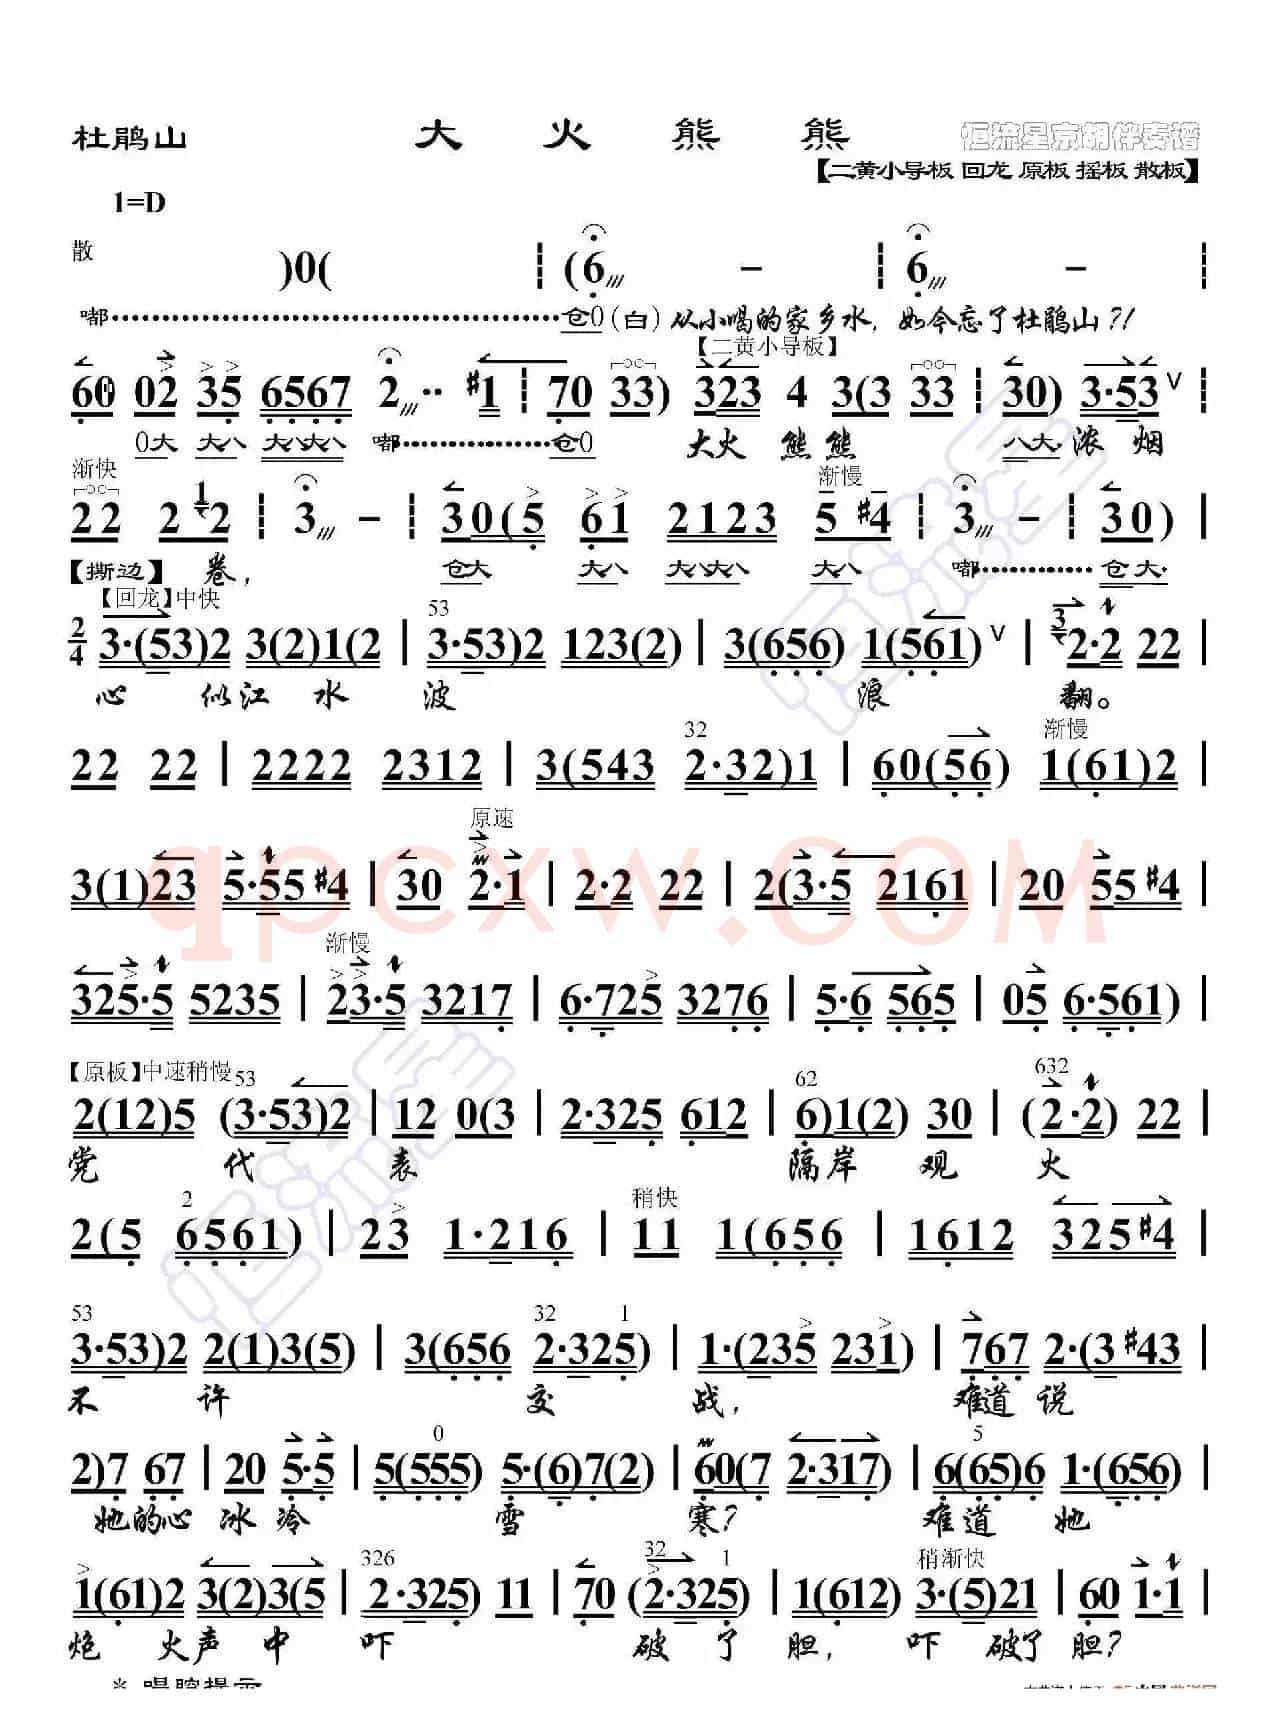 杜鹃山 大火熊熊 恒流星京胡伴奏谱
【二黄小导板 回龙 原板 摇板 散板】
1=D
散 )0( (6 - 6 -
嘟 仓0(白)从小喝的家乡水，如今忘了杜鹃山？！
【二黄小导板】
60 02 35 6567 2·· #1 70 33) 323 4 3(3 33 30) 3·53 V
0大 大八 大八大八 嘟 仓0 大火 熊熊 八大· 浓 烟
渐快 渐慢
22 2 1 2 3 - 30(5 61 2123 5 #4 3 - 30)
【撕边】卷， 仓大 大八 大八大八 大八 嘟 仓大·
【回龙】中快 53
2/4 3·(53)2 3(2)1(2 | 3·53)2 123(2) | 3(656) 1(561) V | 3 2·2 22 |
心 似江 水 波 浪 翻。
32 渐慢
22 22 | 2222 2312 | 3(543 2·32)1 | 60(56) 1(61)2 |
原速
3(1)23 5·55#4 | 30 2·1 | 2·2 22 | 2(3·5 2161 | 20 55#4 |
渐慢
325·5 5235 | 23·5 3217 | 6·725 3276 | 5·6 565 | 05 6·561) |
【原板】中速稍慢 53 62 632
2(12)5 (3·53)2 | 12 0(3 | 2·325 612 | 6)1(2) 30 | (2·2) 22 |
党 代 表 隔岸 观 火
2 稍快
2(5 6561) | 23 1·216 | 11 1(656 | 1612 325#4 |
53 32 1
3·53)2 2(1)3(5) | 3(656 2·325) | 1·(235 231) | 767 2·(3 #43 |
不 许 交 战， 难道 说
0 5
2)7 67 | 20 5·5 | 5(555) 5·(6)7(2) | 60(7 2·317) | 6(65)6 1·(656) |
她的心 冰 冷 雪 寒？ 难道 她
326 32 1 稍渐快
1(61)2 3(2)3(5 | 2·325) 11 | 70 (2·325) | 1(612) 3·(5)21 | 60 1·1 |
炮 火声 中 吓 破 了 胆， 吓 破了 胆？
* 唱腔提示
恒流星
恒流星
qpcxw.COM